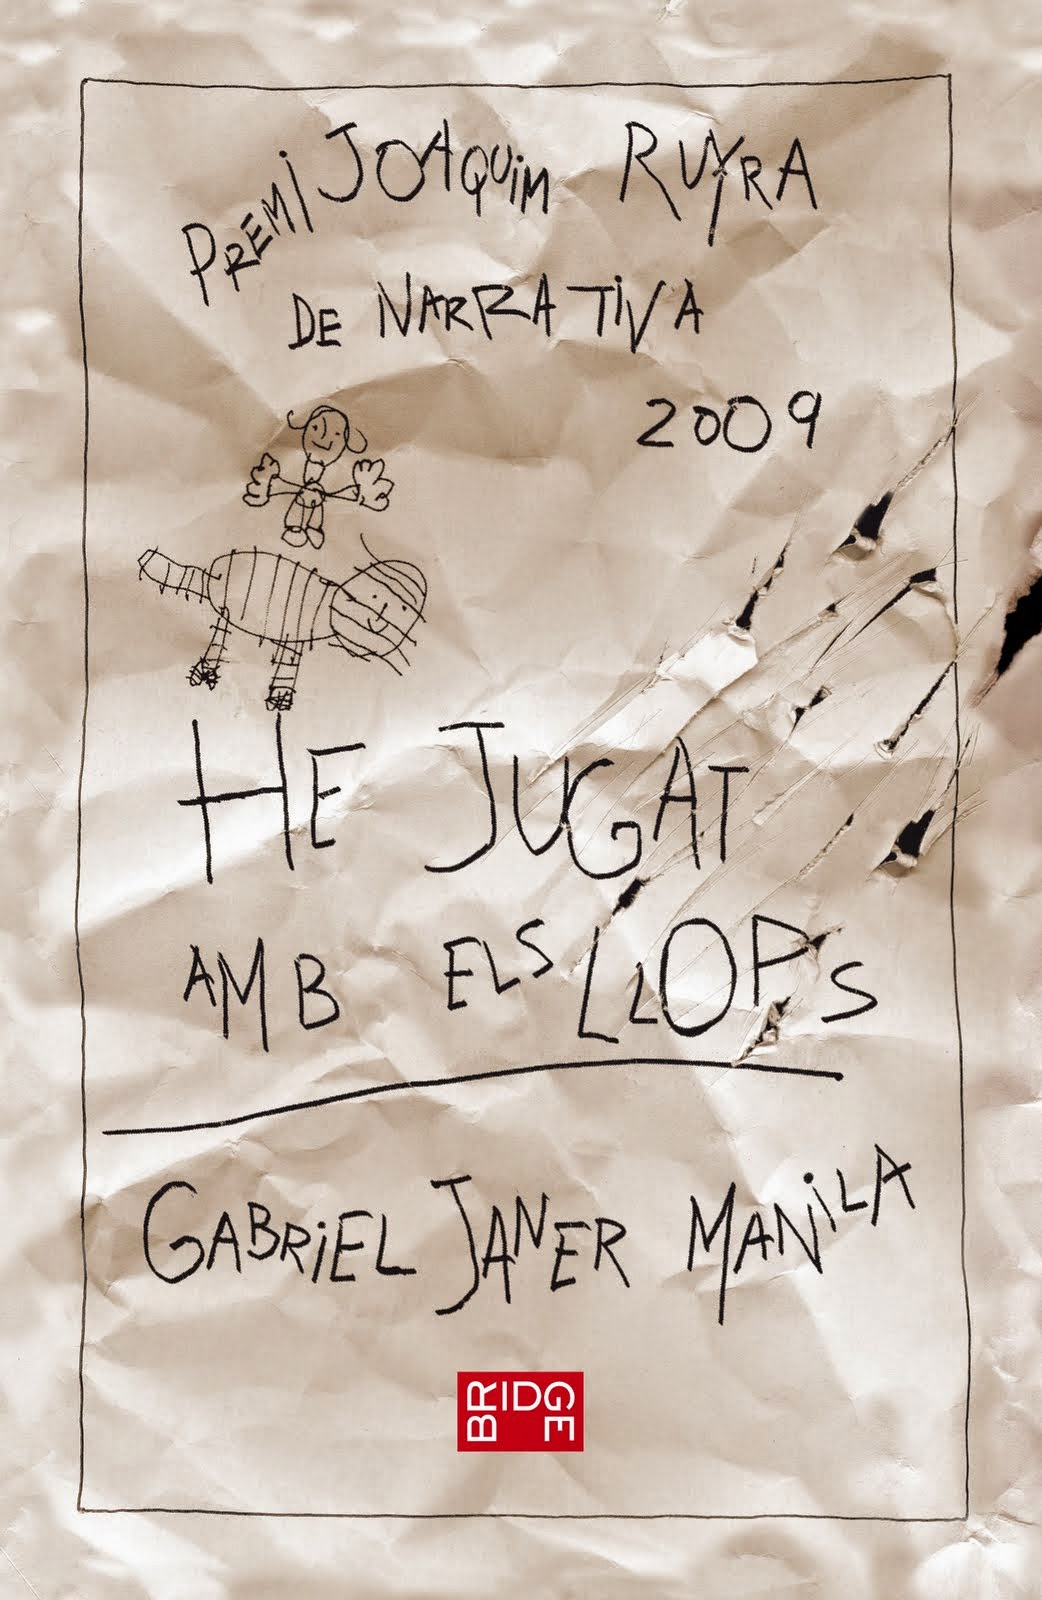 PREMI JOAQUIM RUYRA
DE NARRATIVA
2009
HE JUGAT
AMB ELS LLOPS
GABRIEL JANER MANILA
BRIDGE